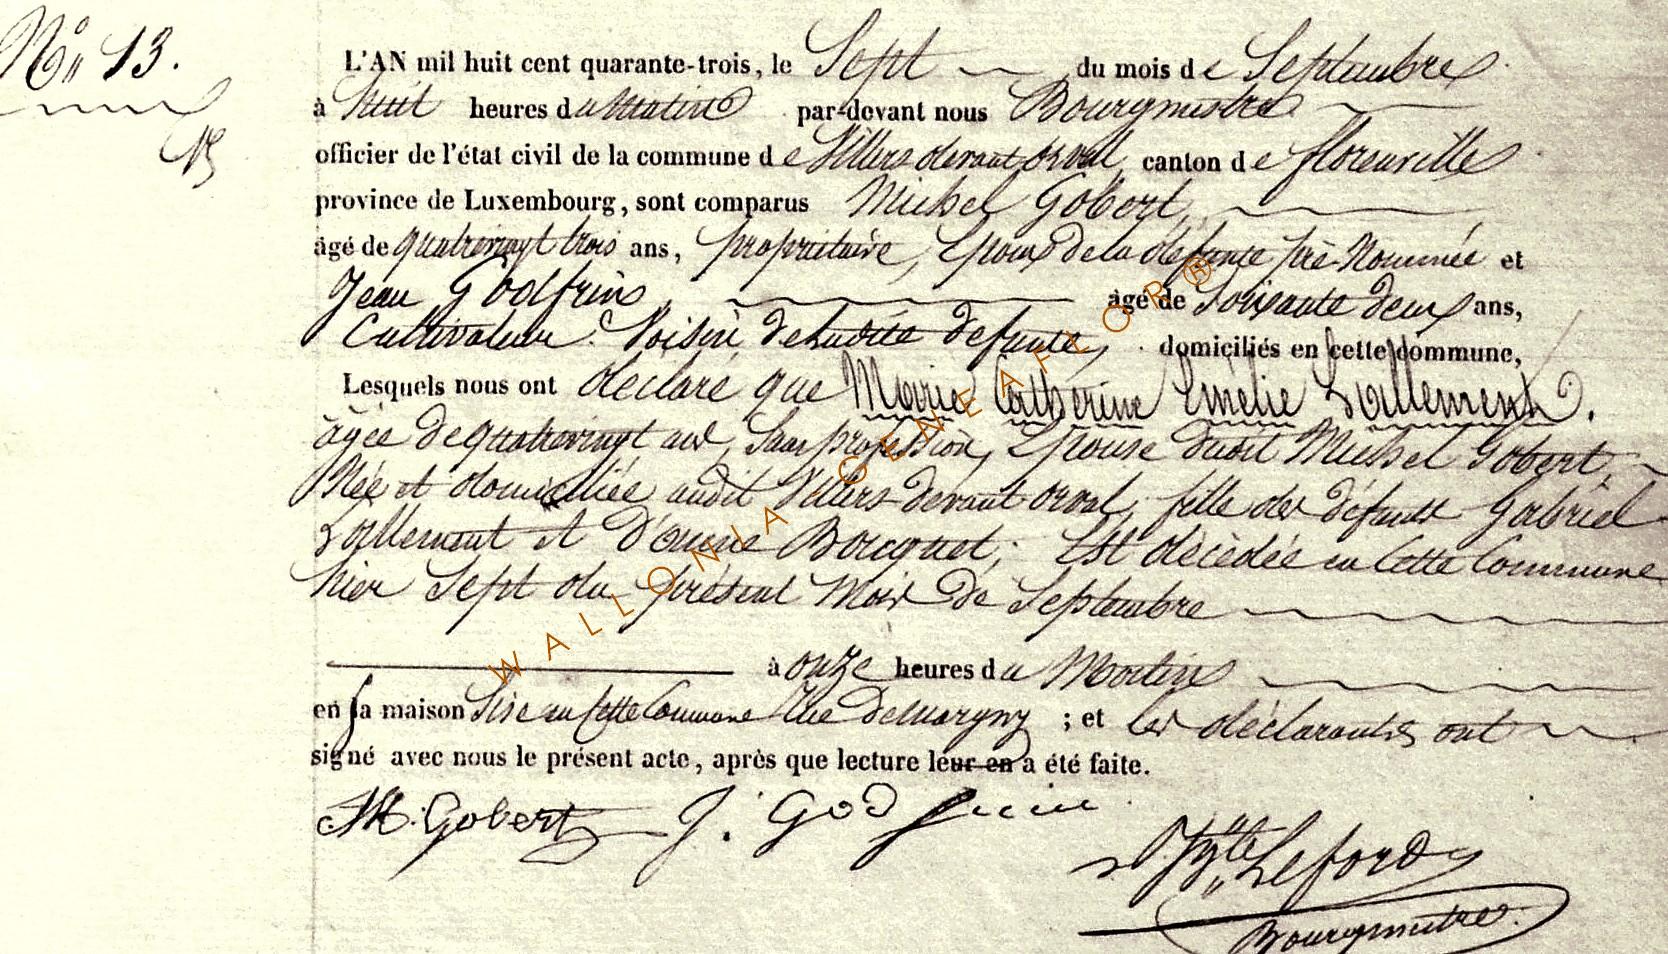 N° 13.
L'AN mil huit cent quarante-trois, le Sept du mois de Septembre
à huit heures du Matin par-devant nous Bourgmestre
officier de l'état civil de la commune de Villers devant orval, canton de florenville
province de Luxembourg, sont comparus Michel Gobert,
âgé de quatrevingt trois ans, propriétaire, Epoux de la défunte pré-Nommée et
Jean Godfrin, âgé de Soixante deux ans,
Cultivateur. Voisin de Ladite défunte, domiciliés en cette commune,
Lesquels nous ont déclaré que Marie Catherine Emélie Lallement.
âgée de quatrevingt ans, Sans profession, Epouse dudit Michel Gobert,
Née et domiciliée audit Villers devant orval, fille des défunts Gabriel
Lallement et D'anne Bocquet; Est décédée en Cette Commune
hier Sept du présent Mois de Septembre
à onze heures du Matin
en sa maison Sise en Cette Commune Rue Demargny; et les déclarants ont
signé avec nous le présent acte, après que lecture leur en a été faite.
M. Gobert J. Godfrin
Hyte Leford
Bourgmestre.
WALLONIA GENEAFLOR®